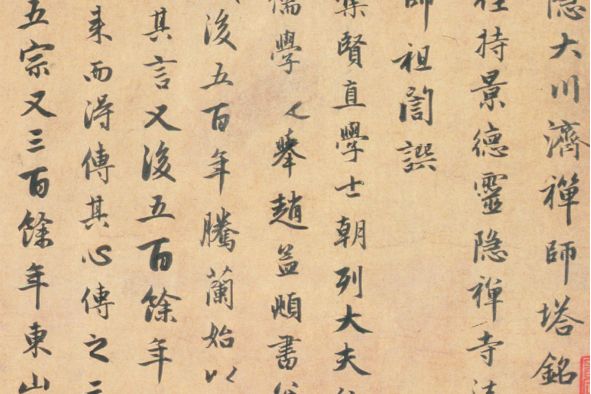 隐大川濟禪師塔銘
住持景德靈隐禪寺法
師祖誾譔
集賢直學士朝列大夫
儒學舉趙孟頫書
後五百年騰蘭始以
其言又後五百餘年
来而得傳其心傳之二
五宗又三百餘年東山